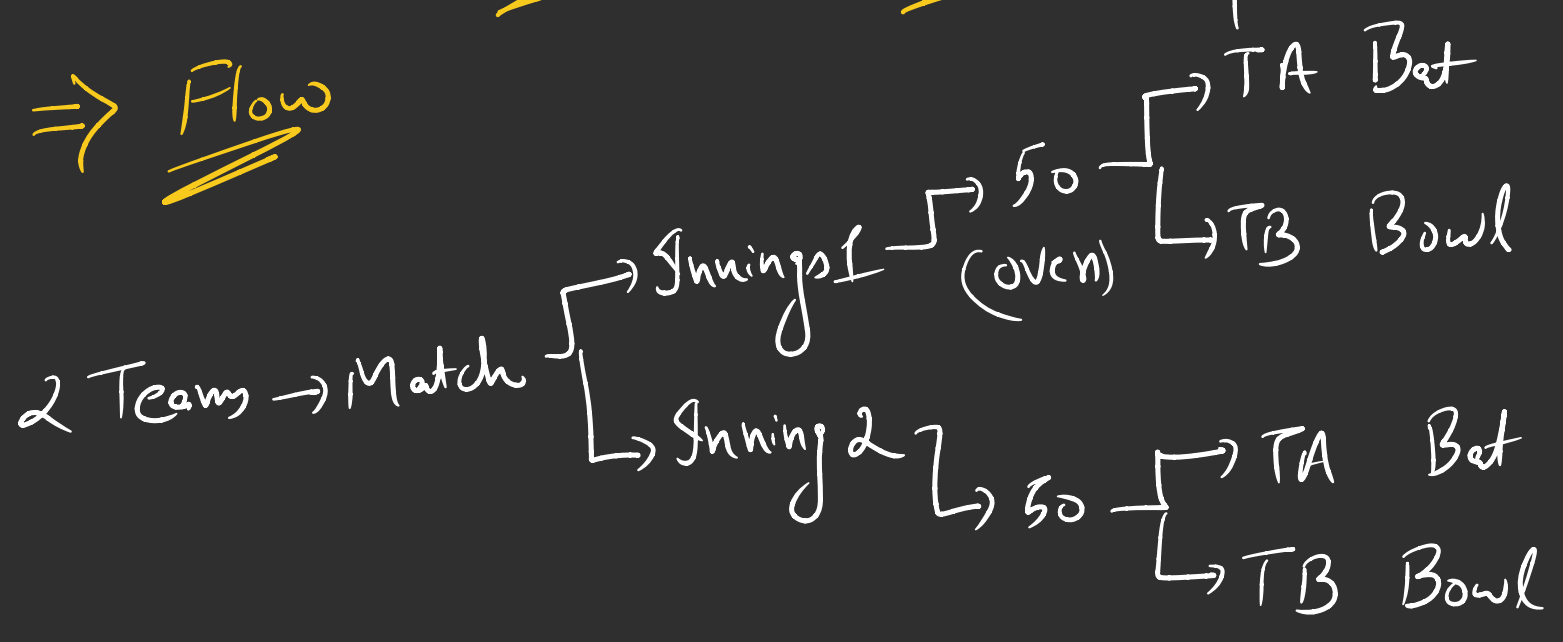 ⇒ Flow
2 Teams → Match
→ Innings 1 → 50 (over)
→ TA Bat
→ TB Bowl
→ Inning 2 → 50
→ TA Bat
→ TB Bowl